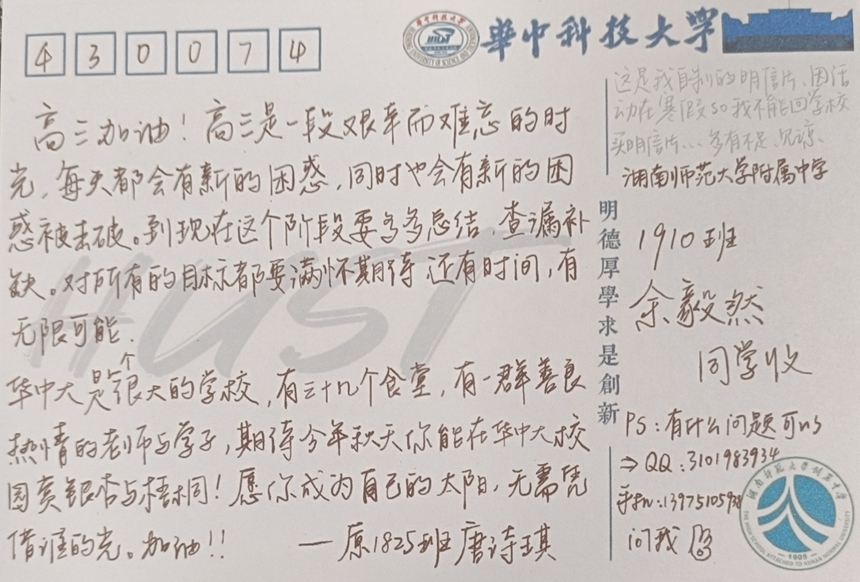 430074
華中科技大学
这是我自制的明信片、因活
动在寒假so我不能回学校
买明信片...多有不足,见谅、
湖南师范大学附属中学
1910班
余毅然
同学收
PS:有什么问题可以
⇒QQ:3101983934
手机:139751059
问我
明德厚學求是創新
高三加油!高三是一段艰辛而难忘的时
光,每天都会有新的困惑,同时也会有新的困
惑被击破。到现在这个阶段要多多总结,查漏补
缺。对所有的目标都要满怀期待 还有时间,有
无限可能.
华中大是个很大的学校,有三十几个食堂,有一群善良
热情的老师与学子,期待今年秋天你能在华中大校
园赏银杏与梧桐!愿你成为自己的太阳,无需凭
借谁的光。加油!!
——原1825班唐诗琪
HUST
湖南师范大学附属中学
THE HIGH SCHOOL ATTACHED TO HUNAN NORMAL UNIVERSITY
1905